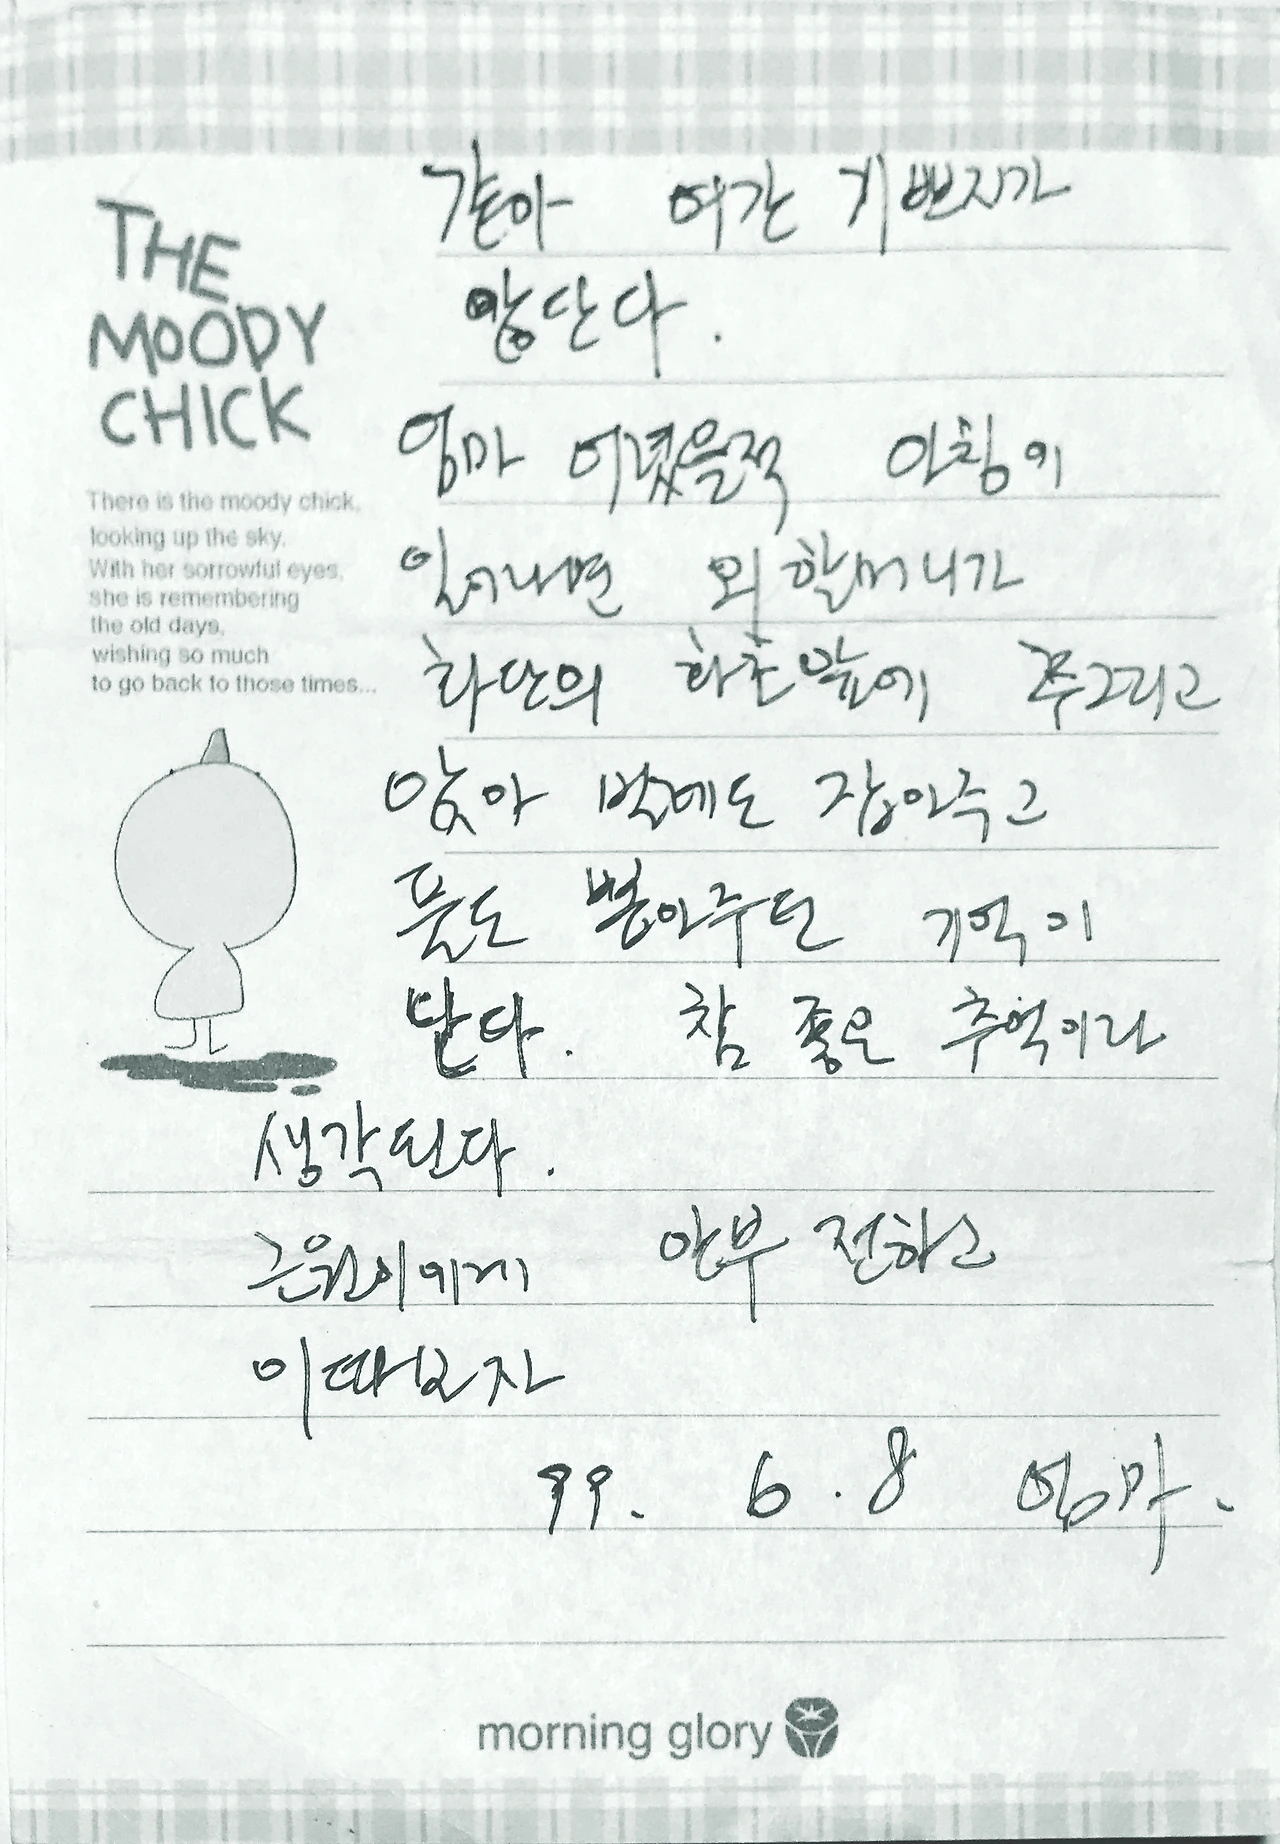 THE
MOODY
CHICK
There is the moody chick,
looking up the sky.
With her sorrowful eyes,
she is remembering
the old days,
wishing so much
to go back to those times...
같아 여간 기쁘지가
않단다.
엄마 어렸을적 아침에
일어나면 외할머니가
화단의 화초앞에 쭈그리고
앉아 벌레도 잡아주고
풀도 뽑아주던 기억이
난다. 참 좋은 추억이라
생각된다.
근원이에게 안부 전하고
이따보자
99. 6. 8 엄마.
morning glory